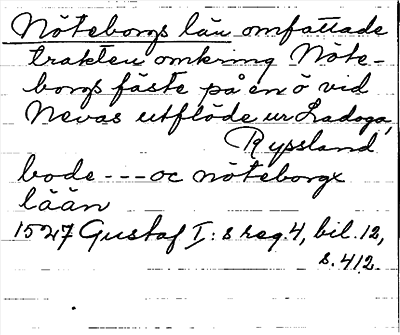 Nöteborgs län omfattade
trakten omkring Nöte-
borgs fäste på en ö vid
Nevas utflöde ur Ladoga,
Ryssland
bode --- oc nöteborgx
låån
1527 Gustaf I:s reg. 4, bil. 12,
s. 412.